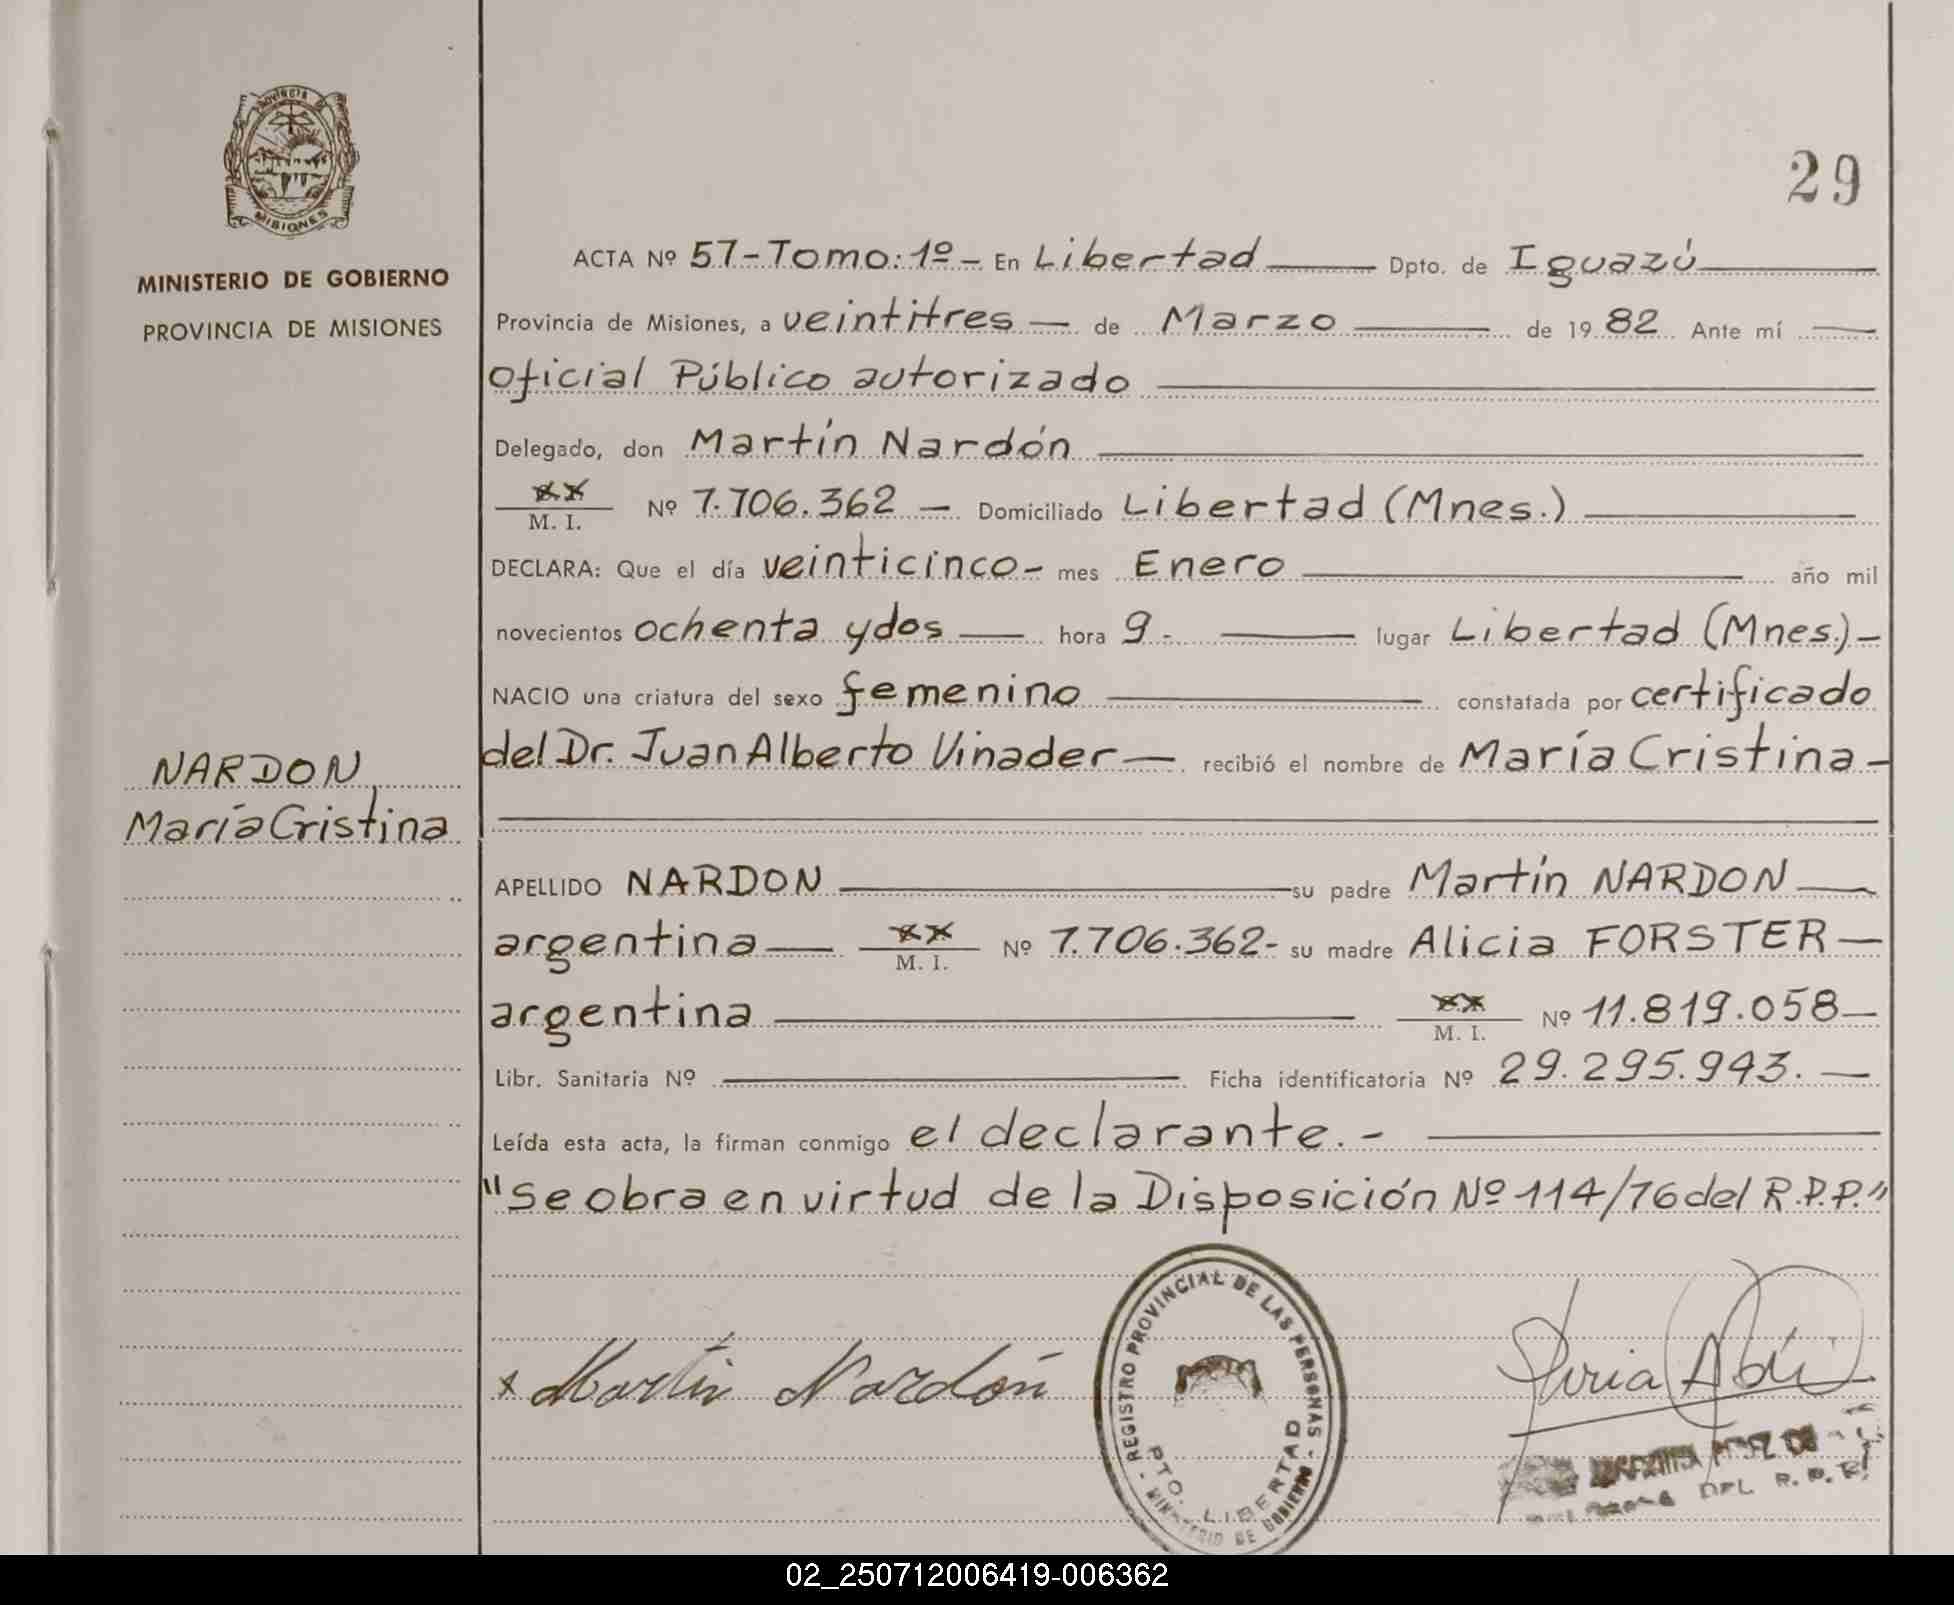 PROVINCIA DE
MISIONES
MINISTERIO DE GOBIERNO
PROVINCIA DE MISIONES
29
ACTA Nº 57-Tomo: 1º - En Libertad Dpto. de Iguazú
Provincia de Misiones, a veintitres - de Marzo de 1982 Ante mí
oficial Público autorizado
Delegado, don Martín Nardón
M. I. Nº 7.706.362 - Domiciliado Libertad (Mnes.)
DECLARA: Que el día veinticinco - mes Enero año mil
novecientos ochenta y dos hora 9.- lugar Libertad (Mnes.) -
NACIO una criatura del sexo femenino constatada por certificado
del Dr. Juan Alberto Vinader - recibió el nombre de María Cristina -
NARDON
María Cristina
APELLIDO NARDON su padre Martín NARDON
argentina M. I. Nº 7.706.362- su madre Alicia FORSTER -
argentina M. I. Nº 11.819.058 -
Libr. Sanitaria Nº Ficha identificatoria Nº 29.295.943. -
Leída esta acta, la firman conmigo el declarante. -
"Se obra en virtud de la Disposición Nº 114/76 del R.P.P."
x Martín Nardón
- REGISTRO PROVINCIAL DE LAS PERSONAS -
PTO. LIBERTAD
MINISTERIO DE GOBIERNO
DEL R. P. P.
02_250712006419-006362